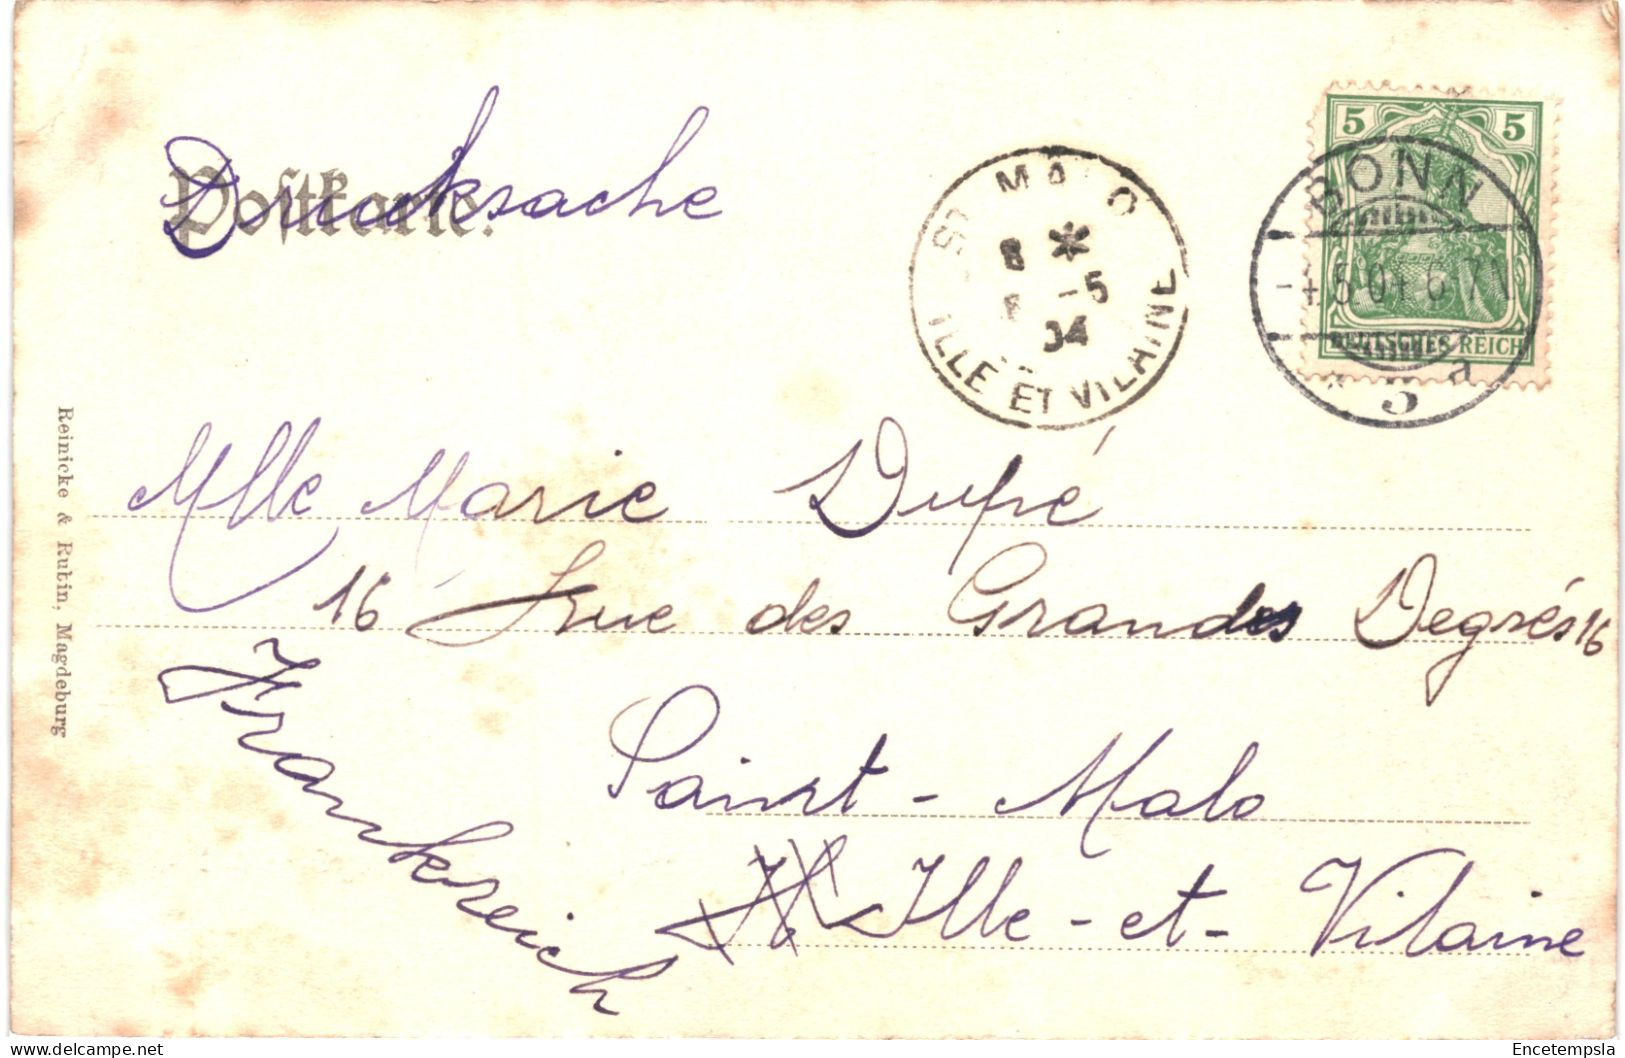 Postkarte.
Drucksache
ST MALO
8 *
-5
04
ILLE ET VILAINE
5 5
DEUTSCHES REICH
BONN
-4.5.04.6-7N
* 5 a
Mlle Marie Dupé
16 rue des Grandes Degrés 16
Saint-Malo
Ille-et-Vilaine
Frankreich
Reinicke & Rubin, Magdeburg
Encetempsla